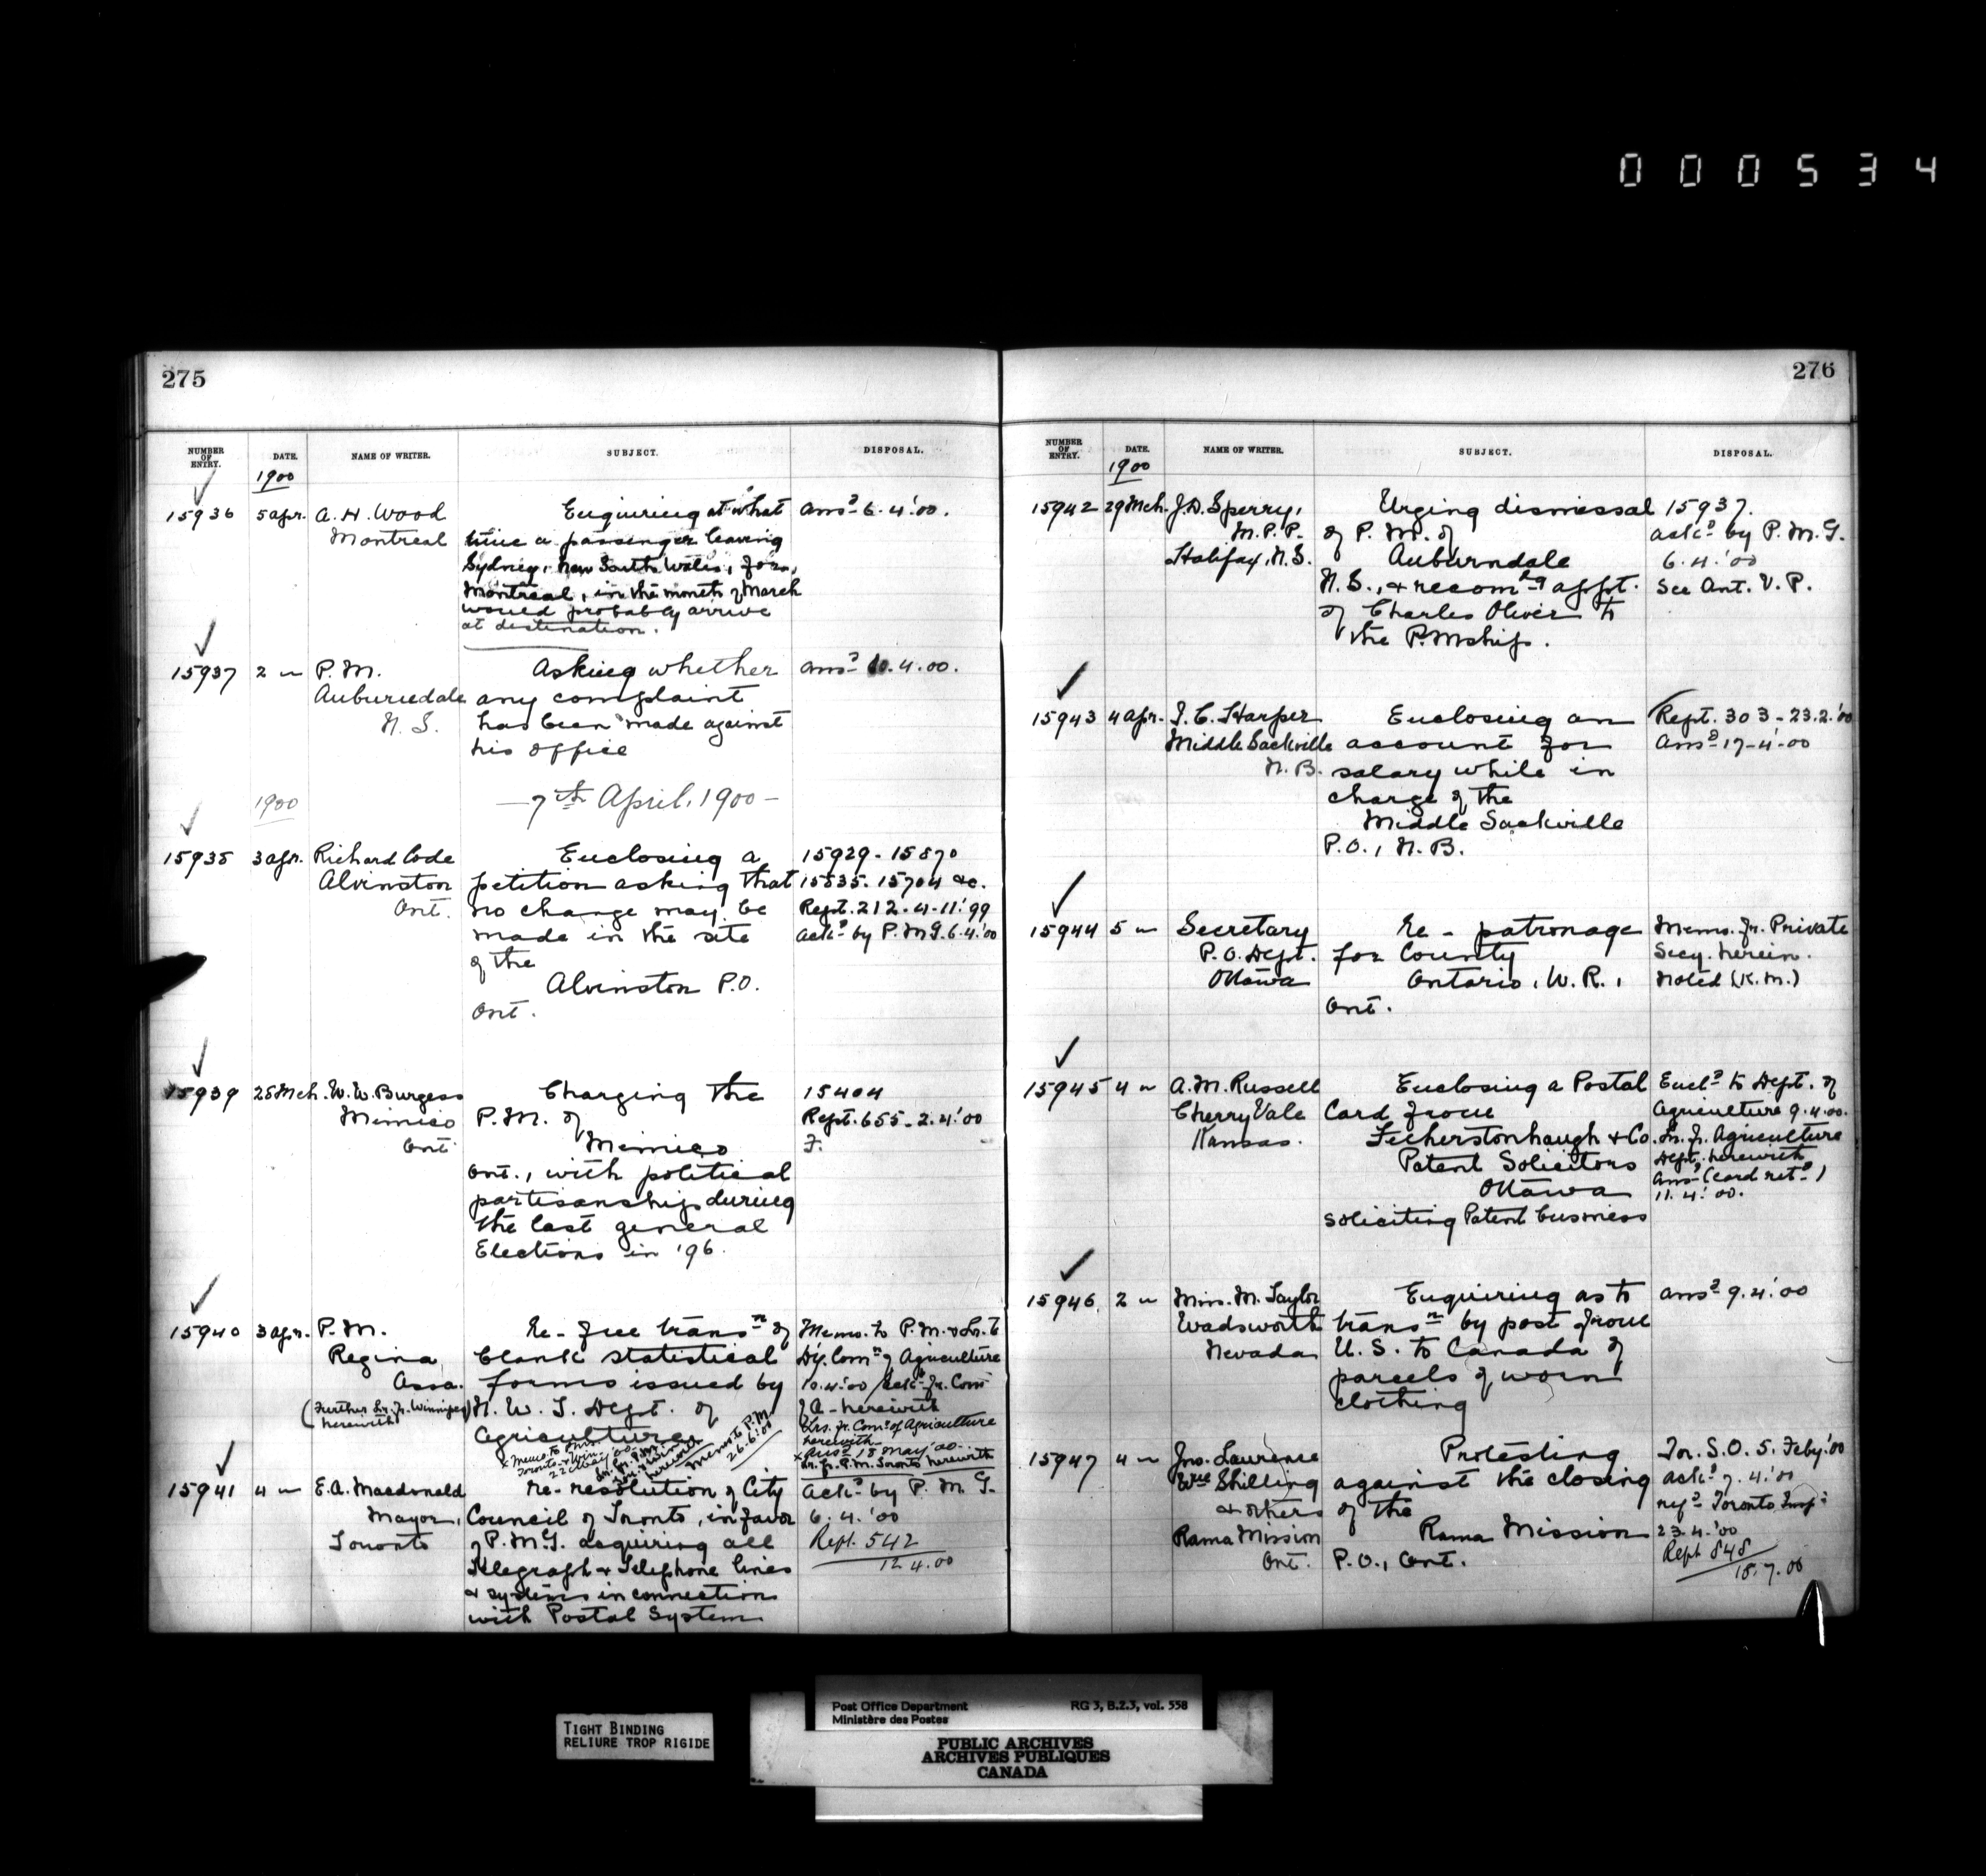 000534
275
NUMBER OF ENTRY. DATE. NAME OF WRITER. SUBJECT. DISPOSAL.
1900
15936 5 apr. A. H. Wood Enquiring at what ansd 6.4.'00.
Montreal time a passenger leaving
Sydney, New South Wales, for,
Montreal, in the month of March
would probably arrive
at destination.
15937 2 " P.M. Asking whether ansd 10.4.00.
Auburndale any complaint
N.S. has been made against
his office
1900 —7th April, 1900—
15938 3 apr. Richard Code Enclosing a 15929 - 15870
Alvinston petition asking that 15835. 15704 &c.
Ont. no change may be Rept. 212 - 4-11.'99
made in the site ackd by P.M.G. 6.4.'00
of the
Alvinston P.O.
Ont.
15939 28 Mch. W. W. Burgess Charging the 15404
Mimico P.M. of Rept. 655 - 2.4.'00
Ont. Mimico F.
Ont., with political
partisanship during
the last general
Elections in '96.
15940 3 apr. P.M. Re- free transn of Memo. to P.M. & Lr. to
Regina blank statistical Dy. Comr of Agriculture
Assa. forms issued by 10.4.'00 / ackt fr. Comr
(Further Lr. fr. Winnipeg herewith) N. W. T. Dept. of of A- herewith
Agriculture Lrs. fr. Comr of Agriculture
herewith
x Ansd 18 May '00
Lr. fr. P.M. Toronto herewith
Memo to P.M.
26.6.'00
15941 4 " E.A. Macdonald Re- resolution of City ackd by P. M. G.
Mayor, Council of Toronto, in favor 6.4.'00
Toronto of P.M.G. acquiring all Rept. 542
Telegraph & Telephone lines 12.4.00
& systems in connection
with Postal System
276
NUMBER OF ENTRY. DATE. NAME OF WRITER. SUBJECT. DISPOSAL.
1900
15942 29 Mch. J.D. Sperry, Urging dismissal 15937.
M.P.P. of P.M. of ackd by P.M.G.
Halifax, N.S. Auburndale 6.4.'00
N.S., & recomdg appt. See Ant. V. P.
of Charles Oliver to
the P.Mship.
15943 4 apr. I. C. Harper Enclosing an Rept. 303 - 23.2.'00
Middle Sackville account for ansd 17-4-00
N.B. salary while in
charge of the
Middle Sackville
P.O., N.B.
15944 5 " Secretary Re - patronage Memo. fr. Private
P.O. Dept. for County Secy. herein.
Ottawa Ontario, W.R., Noted (K.M.)
Ont.
15945 4 " A.M. Russell Enclosing a Postal Encld to Dept. of
Cherry Vale Card from Agriculture 9.4.00.
Kansas. Fetherstonhaugh & Co. Lr. fr. Agriculture
Patent Solicitors Dept. herewith
Ottawa ansd (card retd)
soliciting Patent business 11.4.'00.
15946 2 " Miss. M. Taylor Enquiring as to ansd 9.4.'00
Wadsworth transn by post from
Nevada U.S. to Canada of
parcels of worn
clothing
15947 4 " Jno. Lawrence Protesting Tor. S.O. 5. Feby.'00
Wm Shilling against the closing ackd 7.4.'00
& others of the refd Toronto Inspr
Rama Mission Rama Mission 23.4.'00
Ont. P.O., Ont. Rept 848
18.7.00
TIGHT BINDING
RELIURE TROP RIGIDE
Post Office Department RG 3, B.2.3, vol. 558
Ministère des Postes
PUBLIC ARCHIVES
ARCHIVES PUBLIQUES
CANADA